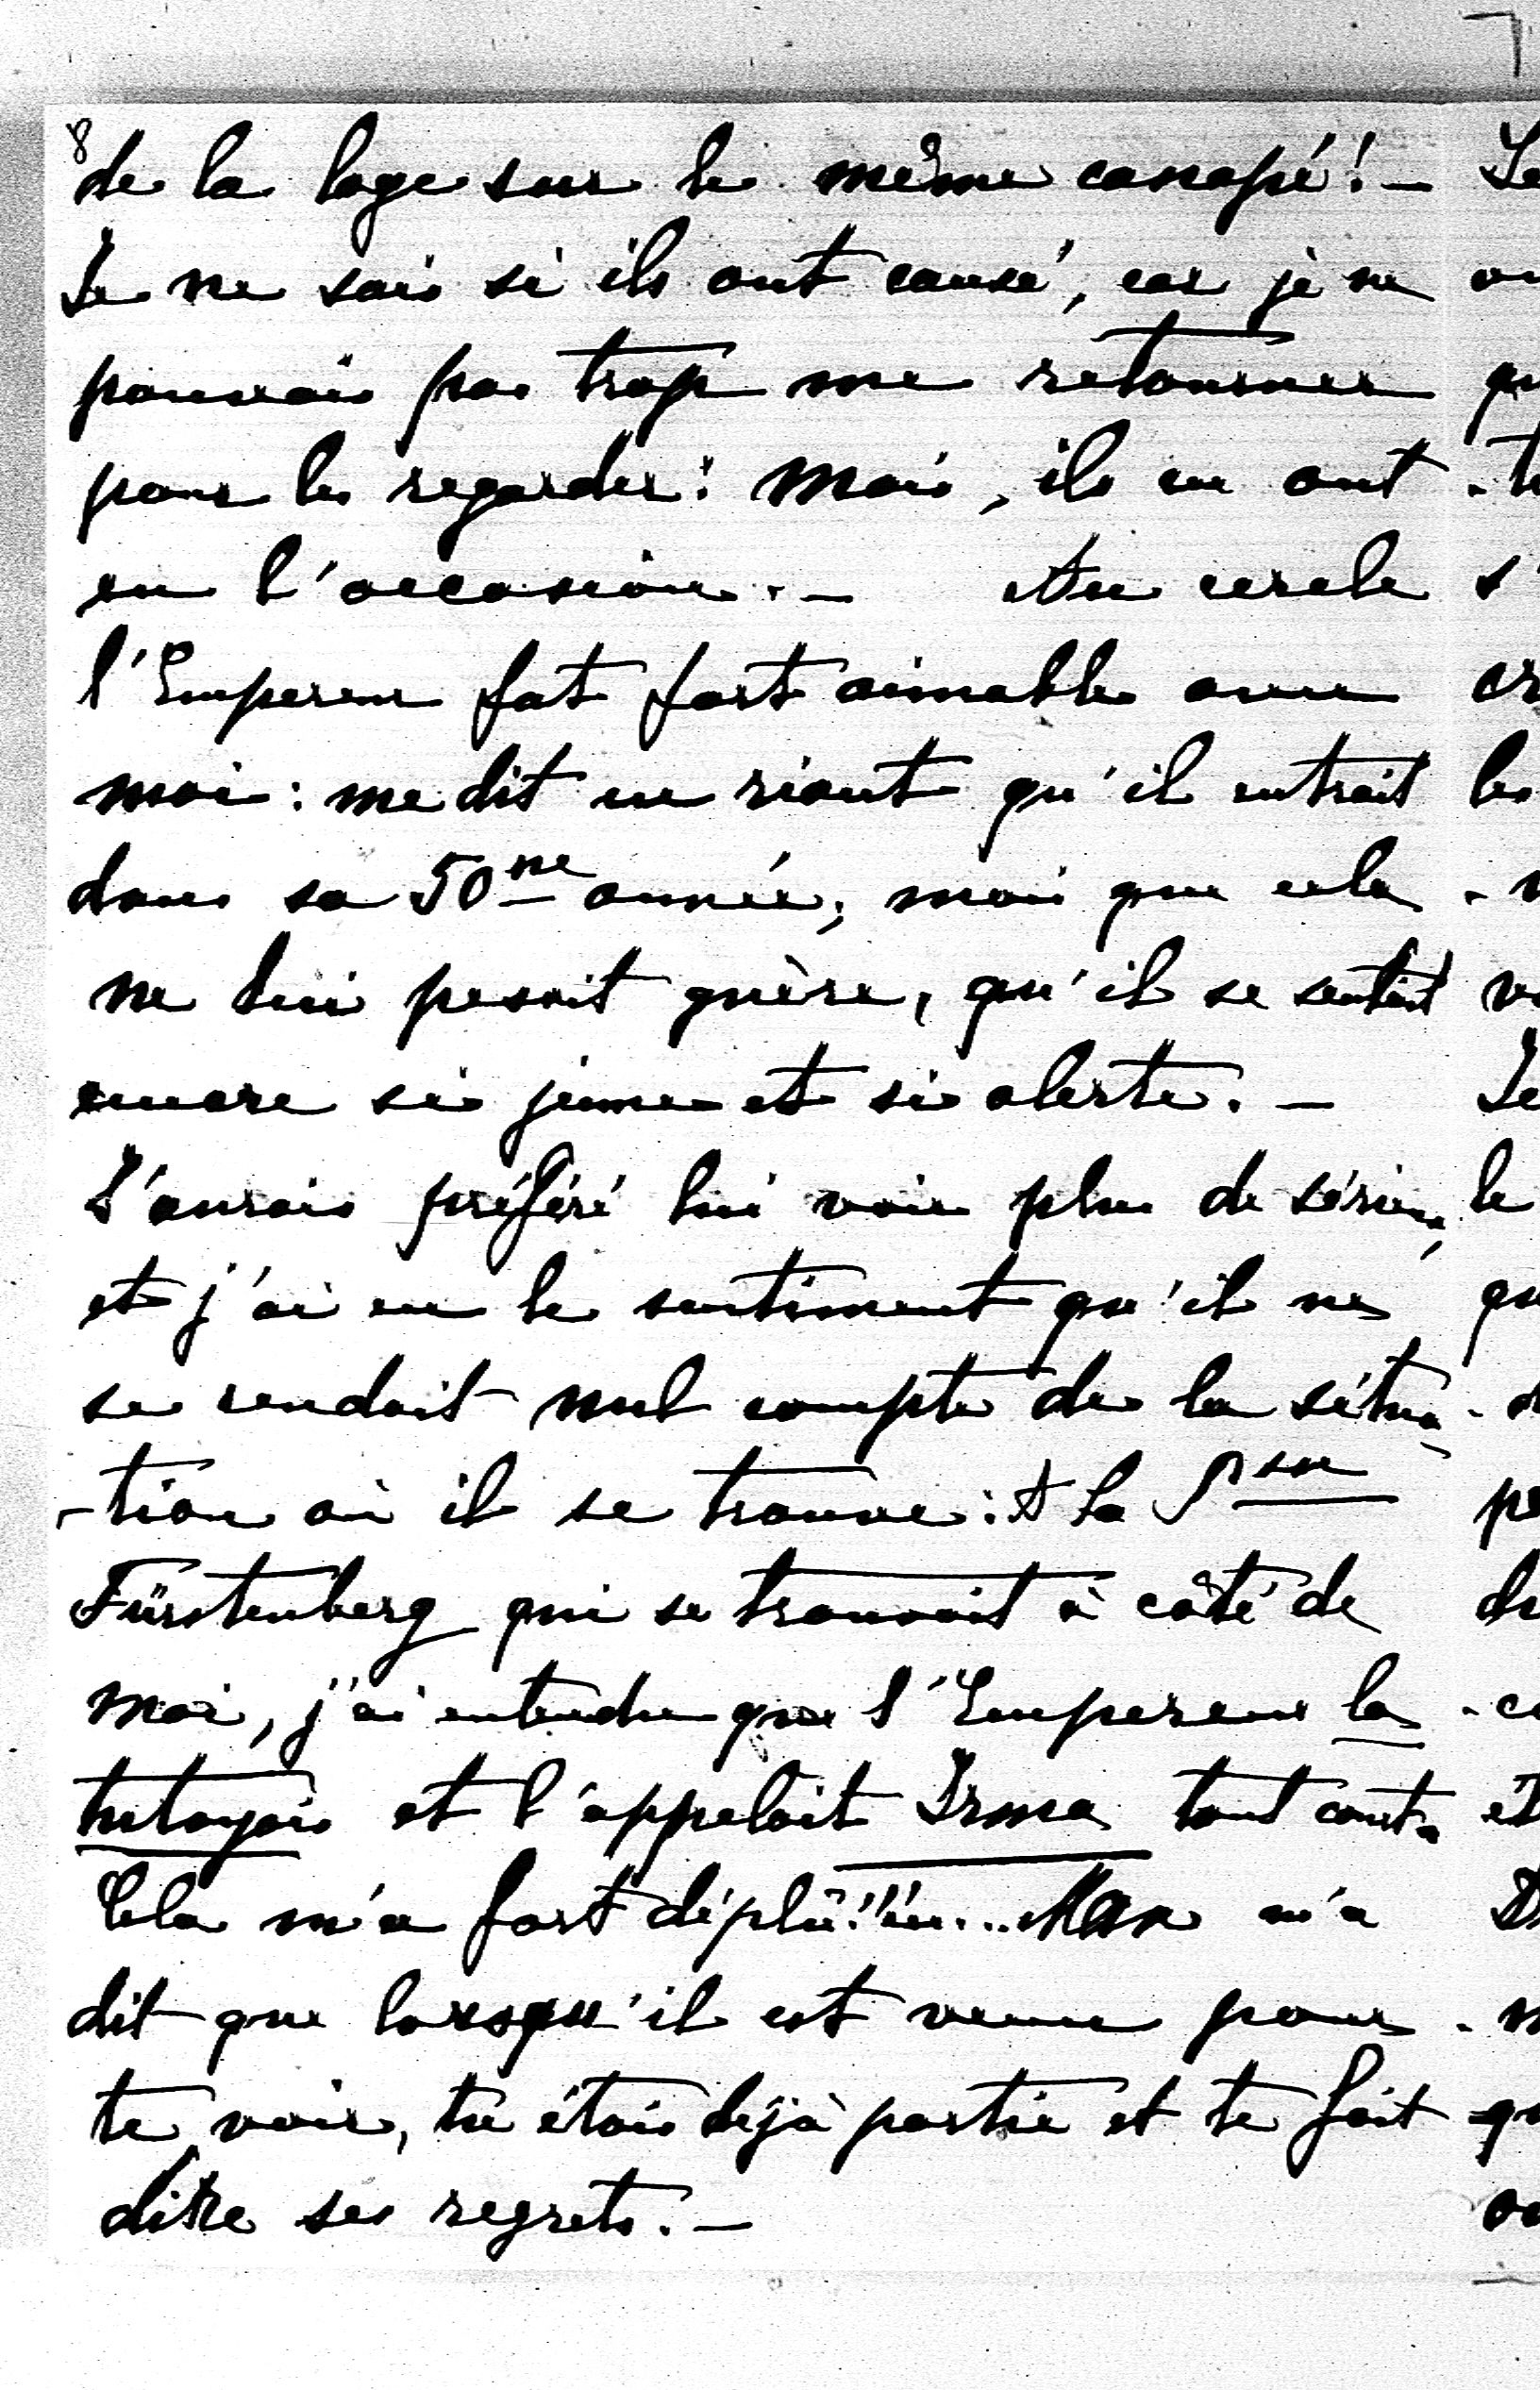 8
de la loge sur le même canapé! –
Je ne sais si ils ont causé, car je ne
pouvais pas trop me retourner
pour les regarder: Mais, ils en ont
eu l'occasion. – Au cercle
l'Empereur fut fort aimable avec
moi: me dit en riant qu'il entrait
dans sa 50ne année; mais que cela
ne lui pesait guère, qu'il se sentait
encore si jeune et si alerte. –
J'aurais préféré lui voir plus de sérieux,
et j'ai eu le sentiment qu'il ne
se rendait nul compte de la situa-
-tion où il se trouve: A la Psse
Fürstenberg qui se trouvait à côté de
moi, j'ai entendu que l'Empereur la
tutoyais et l'appelait Irma tout court.
Cela m'a fort déplû!! ... Max m'a
dit que lorsqu'il est venu pour
te voir, tu étais déjà partie et te fait
dire ses regrets. –